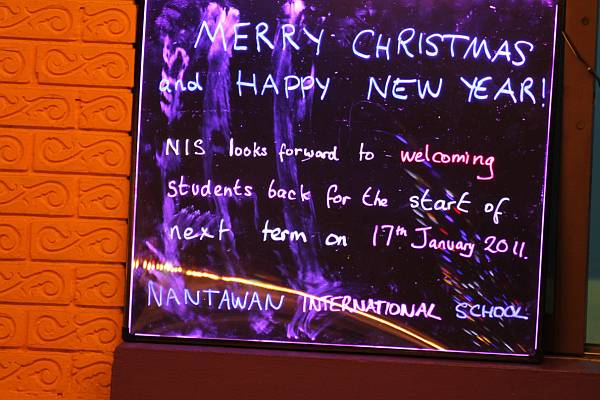 MERRY CHRISTMAS
and HAPPY NEW YEAR!
NIS looks forward to welcoming
students back for the start of
next term on 17th January 2011.
NANTAWAN INTERNATIONAL SCHOOL